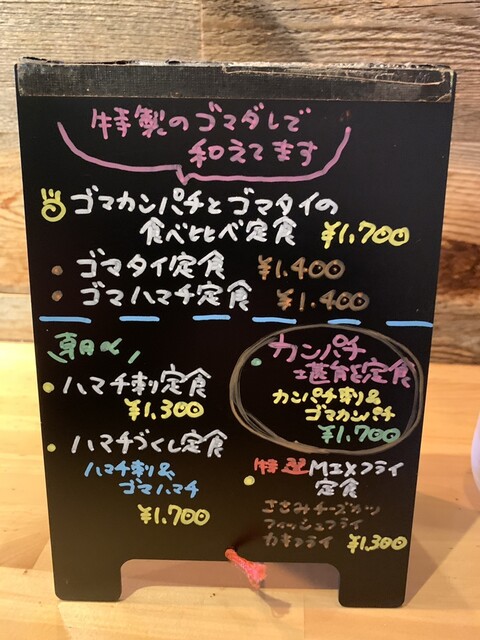 特製のゴマダレで
和えてます
ゴマカンパチとゴマタイの
食べとべ定食 ¥1.700
ゴマタイ定食 ¥1.400
ゴマハマチ定食 ¥1.400
ハマチ刺定食
¥1.300
ハマチづくし定食
ハマチ刺&
ゴマハマチ
¥1.700
カンパチ
堪能定食
カンパチ刺&
ゴマカンパチ
¥1.700
MIXフライ
定食
ささみチーズカツ
フィッシュフライ
カキフライ ¥1.300